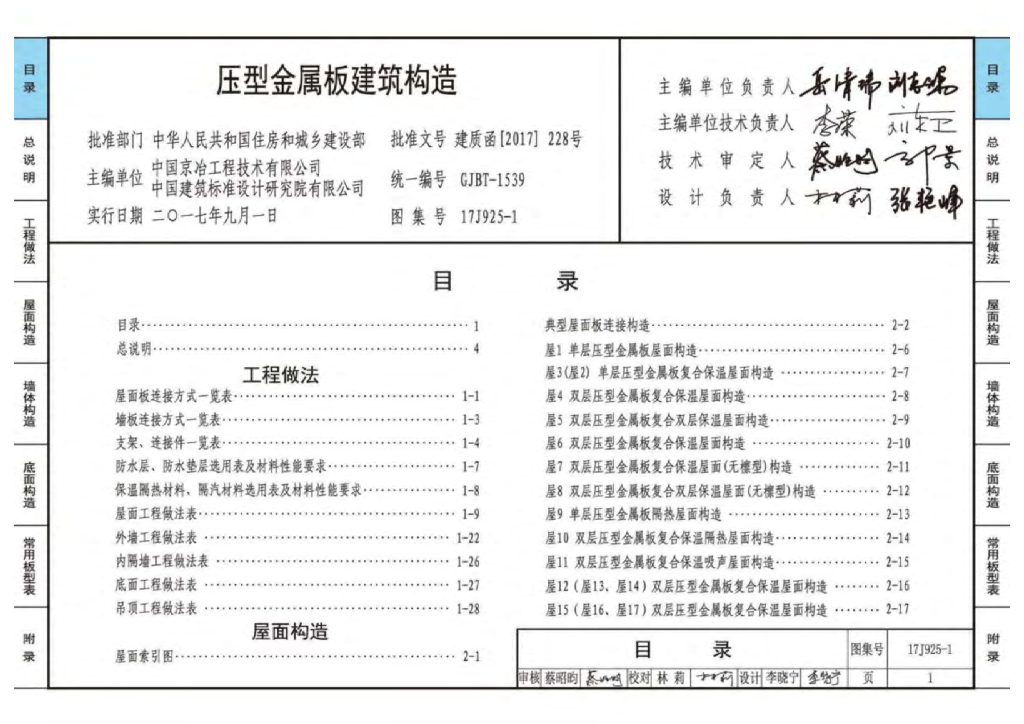 压型金属板建筑构造
批准部门 中华人民共和国住房和城乡建设部 批准文号 建质函[2017] 228号
主编单位 中国京冶工程技术有限公司
中国建筑标准设计研究院有限公司
统一编号 GJBT-1539
实行日期 二〇一七年九月一日 图集号 17J925-1
主编单位负责人
主编单位技术负责人
技术审定人
设计负责人
目 录
目录 1
总说明 4
工程做法
屋面板连接方式一览表 1-1
墙板连接方式一览表 1-3
支架、连接件一览表 1-4
防水层、防水垫层选用表及材料性能要求 1-7
保温隔热材料、隔汽材料选用表及材料性能要求 1-8
屋面工程做法表 1-9
外墙工程做法表 1-22
内隔墙工程做法表 1-26
底面工程做法表 1-27
吊顶工程做法表 1-28
屋面构造
屋面索引图 2-1
典型屋面板连接构造 2-2
屋1 单层压型金属板屋面构造 2-6
屋3(屋2) 单层压型金属板复合保温屋面构造 2-7
屋4 双层压型金属板复合保温屋面构造 2-8
屋5 双层压型金属板复合双层保温屋面构造 2-9
屋6 双层压型金属板复合保温屋面构造 2-10
屋7 双层压型金属板复合保温屋面(无檩型)构造 2-11
屋8 双层压型金属板复合双层保温屋面(无檩型)构造 2-12
屋9 单层压型金属板隔热屋面构造 2-13
屋10 双层压型金属板复合保温隔热屋面构造 2-14
屋11 双层压型金属板复合保温吸声屋面构造 2-15
屋12(屋13、屋14)双层压型金属板复合保温屋面构造 2-16
屋15(屋16、屋17)双层压型金属板复合保温屋面构造 2-17
目 录 图集号 17J925-1
审核 蔡昭昀 校对 林莉 设计 李晓宁 页 1
目录
总说明
工程做法
屋面构造
墙体构造
底面构造
常用板型表
附录
目录
总说明
工程做法
屋面构造
墙体构造
底面构造
常用板型表
附录